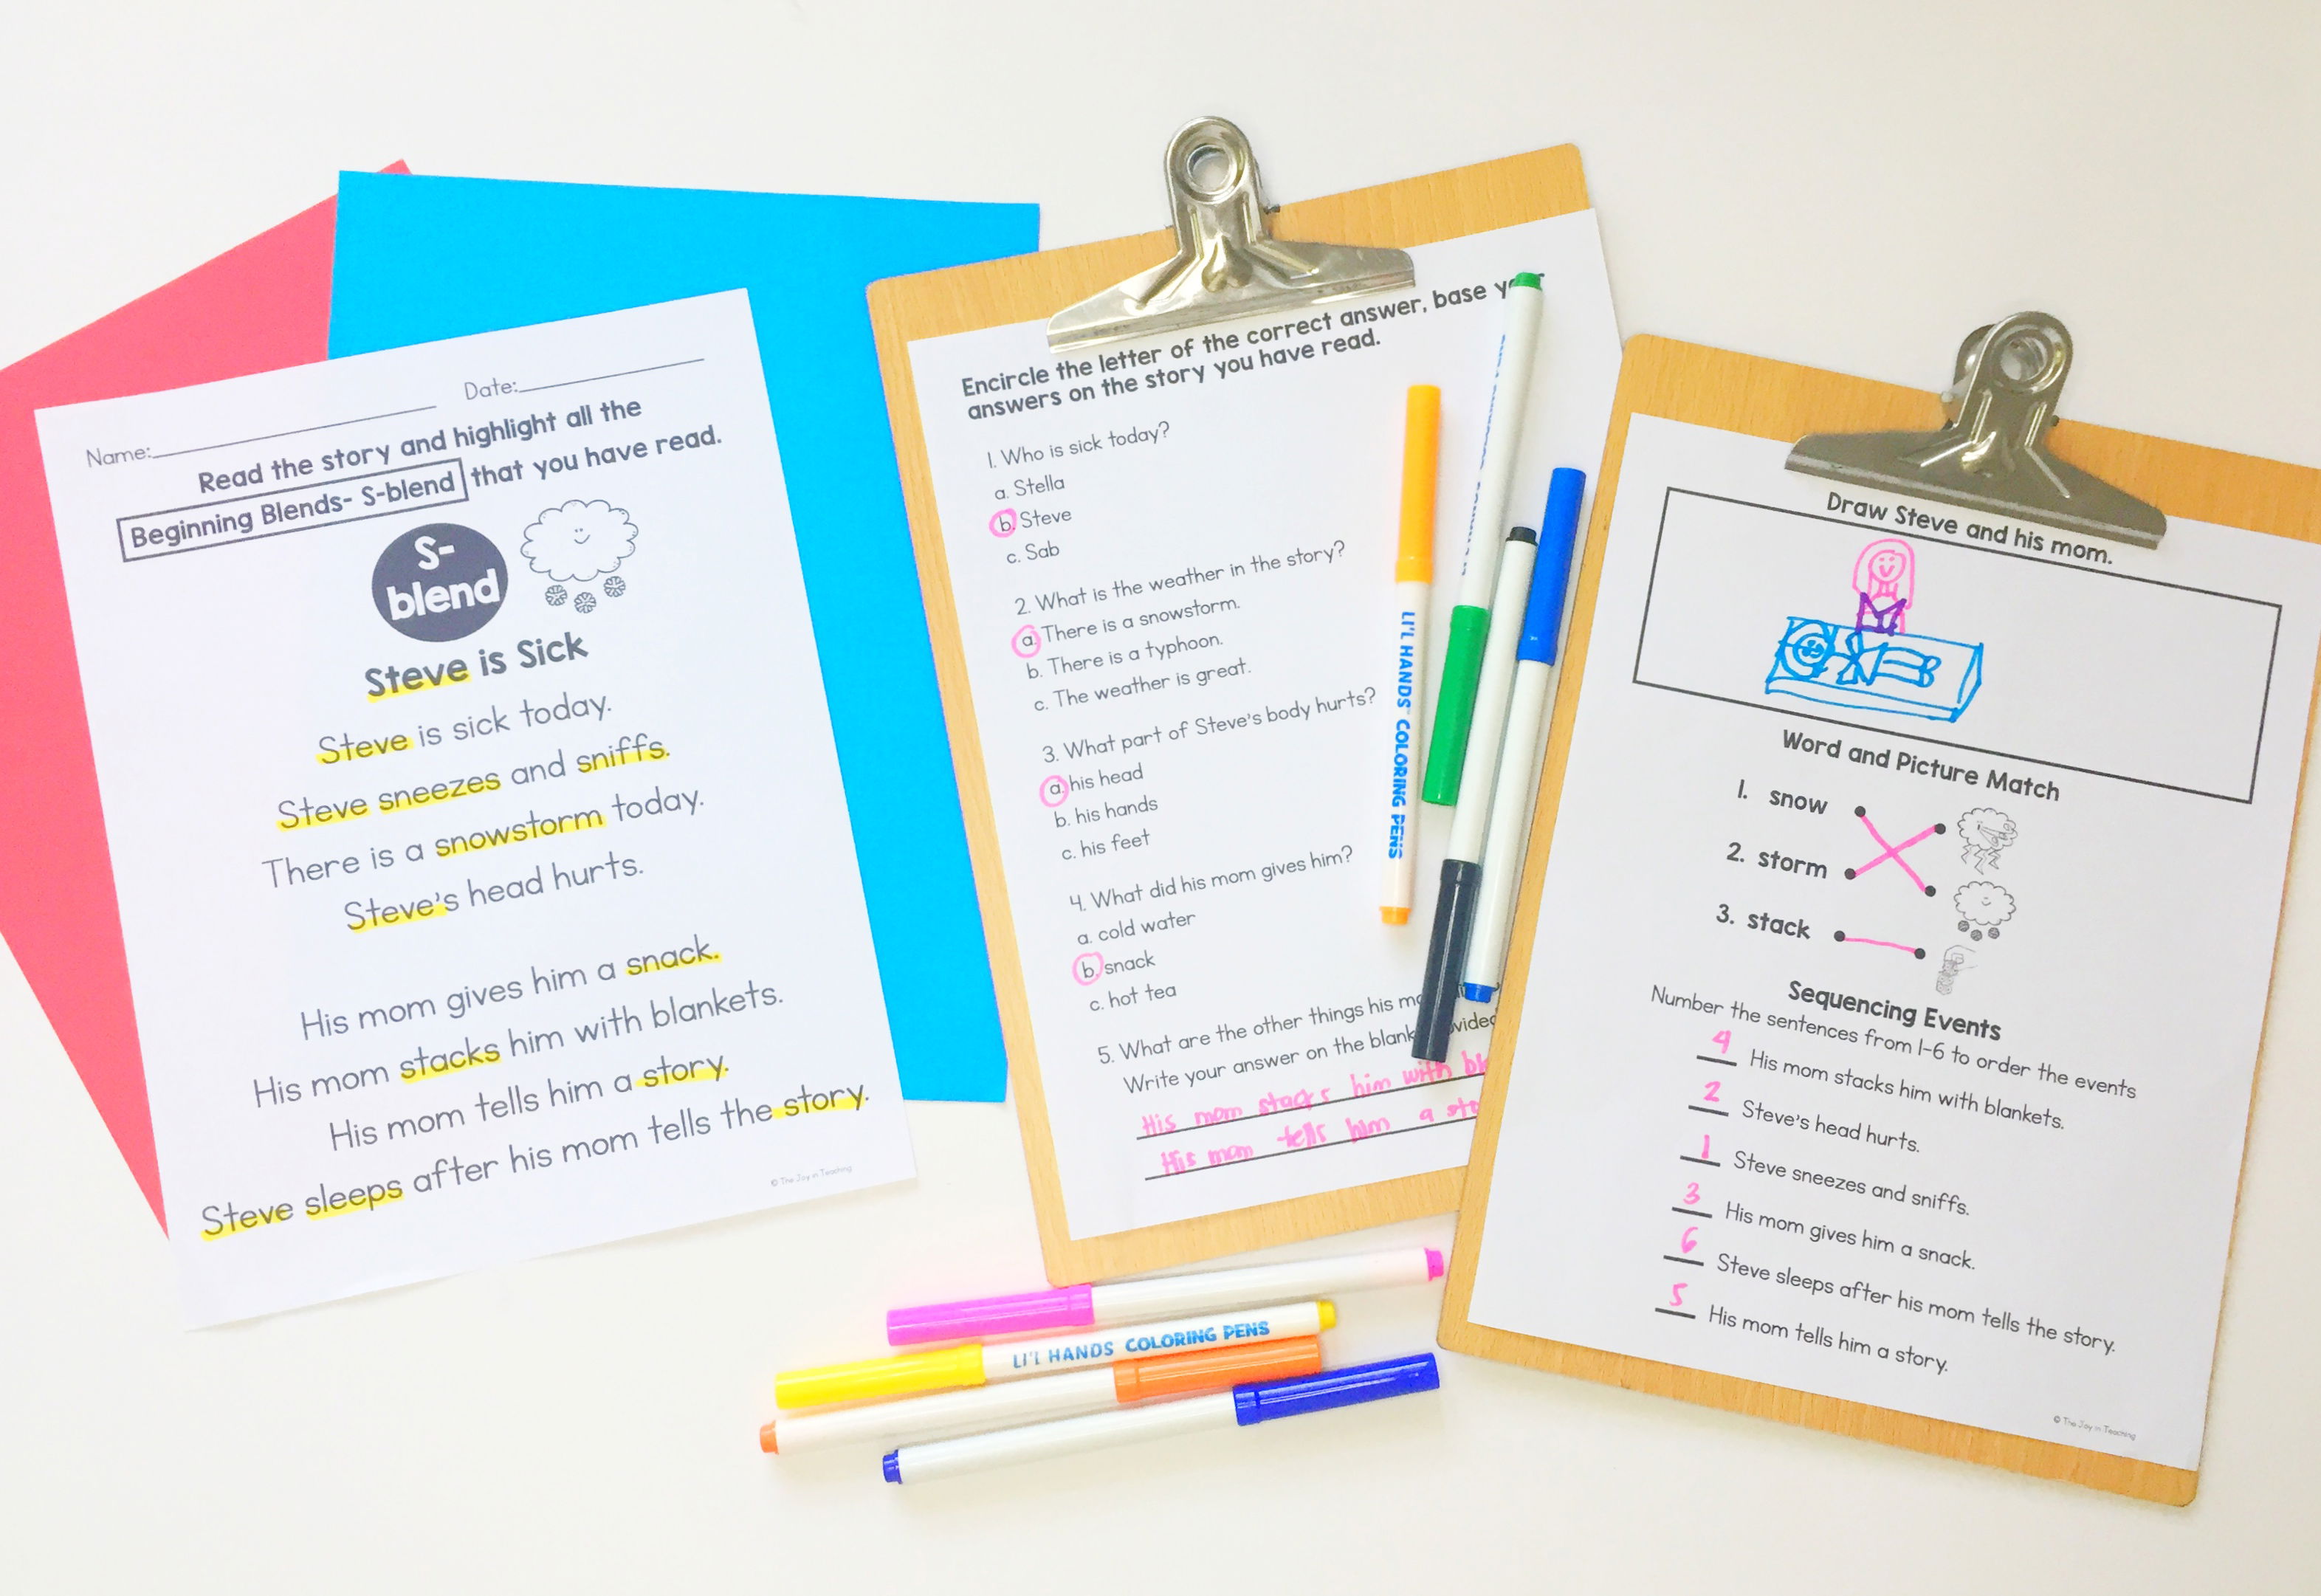 Name: Date:
Read the story and highlight all the
Beginning Blends- S-blend that you have read.
S-
blend
Steve is Sick
Steve is sick today.
Steve sneezes and sniffs.
There is a snowstorm today.
Steve's head hurts.
His mom gives him a snack.
His mom stacks him with blankets.
His mom tells him a story.
Steve sleeps after his mom tells the story.
© The Joy in Teaching
Encircle the letter of the correct answer, base
answers on the story you have read.
1. Who is sick today?
a. Stella
b. Steve
c. Sab
2. What is the weather in the story?
a. There is a snowstorm.
b. There is a typhoon.
c. The weather is great.
3. What part of Steve's body hurts?
a. his head
b. his hands
c. his feet
4. What did his mom gives him?
a. cold water
b. snack
c. hot tea
5. What are the other things his
Write your answer on the blank
His mom stacks him with
His mom tells him a
LI'L HANDS COLORING PENS
LI'L HANDS COLORING PENS
Draw Steve and his mom.
Word and Picture Match
1. snow
2. storm
3. stack
Sequencing Events
Number the sentences from 1-6 to order the events
4 His mom stacks him with blankets.
2 Steve's head hurts.
1 Steve sneezes and sniffs.
3 His mom gives him a snack.
6 Steve sleeps after his mom tells the story.
5 His mom tells him a story.
© The Joy in Teaching